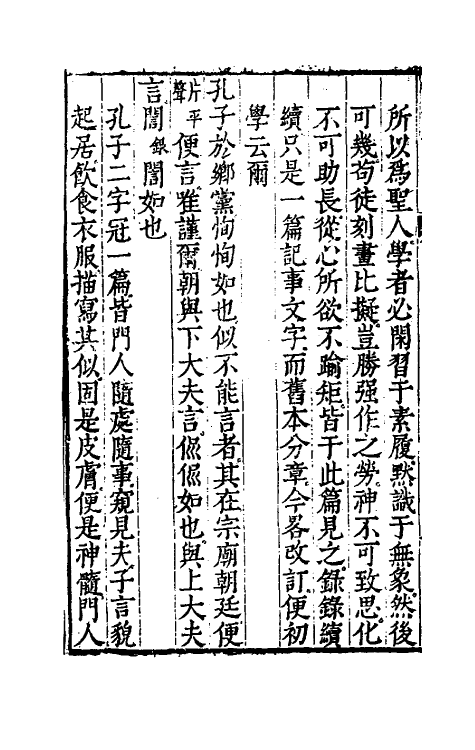 所以爲聖人學者必閑習于素履默識于無象然後
可幾茍徒刻畫比擬豈勝强作之勞神不可致思化
不可助長從心所欲不踰矩皆于此篇見之錄錄續
續只是一篇記事文字而舊本分章今畧改訂便初
學云爾
孔子於鄉黨恂恂如也似不能言者其在宗廟朝廷便
片平聲便言唯謹爾朝與下大夫言侃侃如也與上大夫
言誾銀誾如也
孔子二字冠一篇皆門人隨處隨事窺見夫子言貌
起居飮食衣服描寫其似固是皮膚便是神髓門人